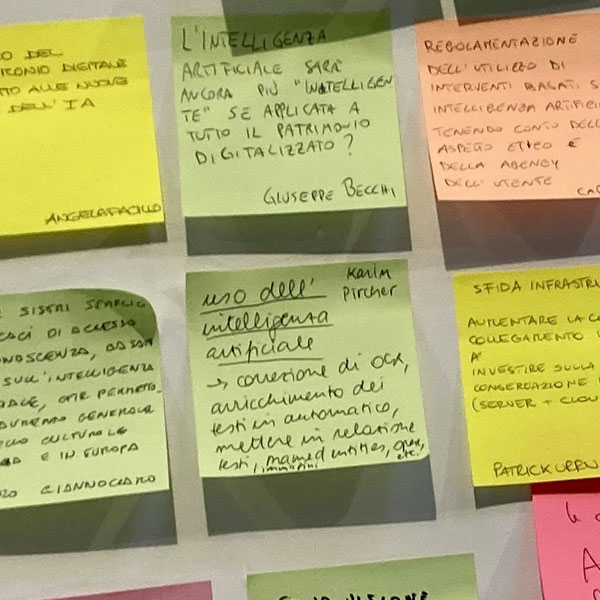 O DEL
ONIO DIGITALE
TO ALLE NUOVE
DELL'IA
ANGELA FACILLO
L'INTELLIGENZA
ARTIFICIALE SARÀ
ANCORA PIÙ "INTELLIGEN
TE" SE APPLICATA A
TUTTO IL PATRIMONIO
DIGITALIZZATO?
GIUSEPPE BECCHI
REGOLAMENTAZIONE
DELL'UTILIZZO DI
INTERVENTI BASATI S
INTELLIGENZA ARTIFICI
TENENDO CONTO DELL
ASPETTO ETICO E
DELLA AGENCY
DELL'UTENTE
CA
SISTEMI SEMPLIC
CACI DI ACCESSO
NOSCENZA, BASATI
SULL'INTELLIGENZA
ALE, CHE PERMETTO-
AUMENTO GENERALE
CULTURALE
E IN EUROPA
GIANNOCCARO
Karin
Pircher
uso dell'
intelligenza
artificiale
→ correzione di OCR,
arricchimento dei
testi in automatico,
mettere in relazione
testi, named entities, opere,
immagini etc.
SFIDA INFRASTRU
AUMENTARE LA C
COLLEGAMENTO
A
INVESTIRE SULLA
CONSERVAZIONE
(SERVER + CLOU
PATRICK URRU
VISIONE